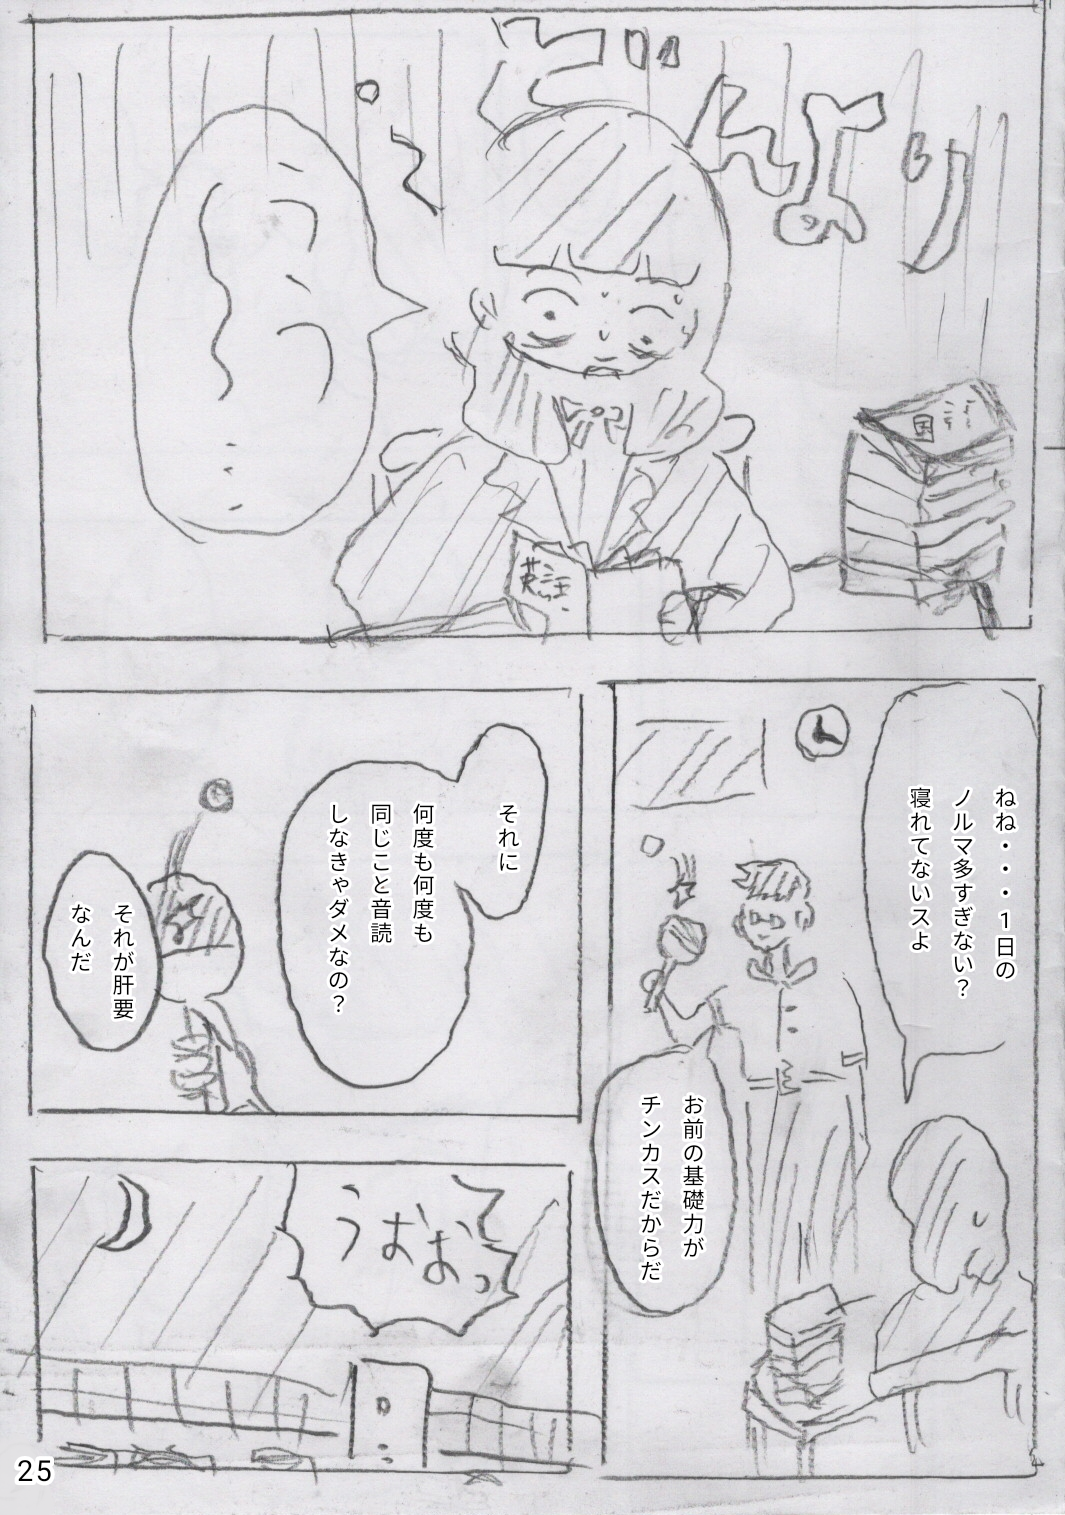 どんより
うつつ…
国語
英語
ねね・・・1日の
ノルマ多すぎない？
寝れてないスよ
お前の基礎力が
チンカスだからだ
それに
何度も何度も
同じこと音読
しなきゃダメなの？
それが肝要
なんだ
うおおっ
25